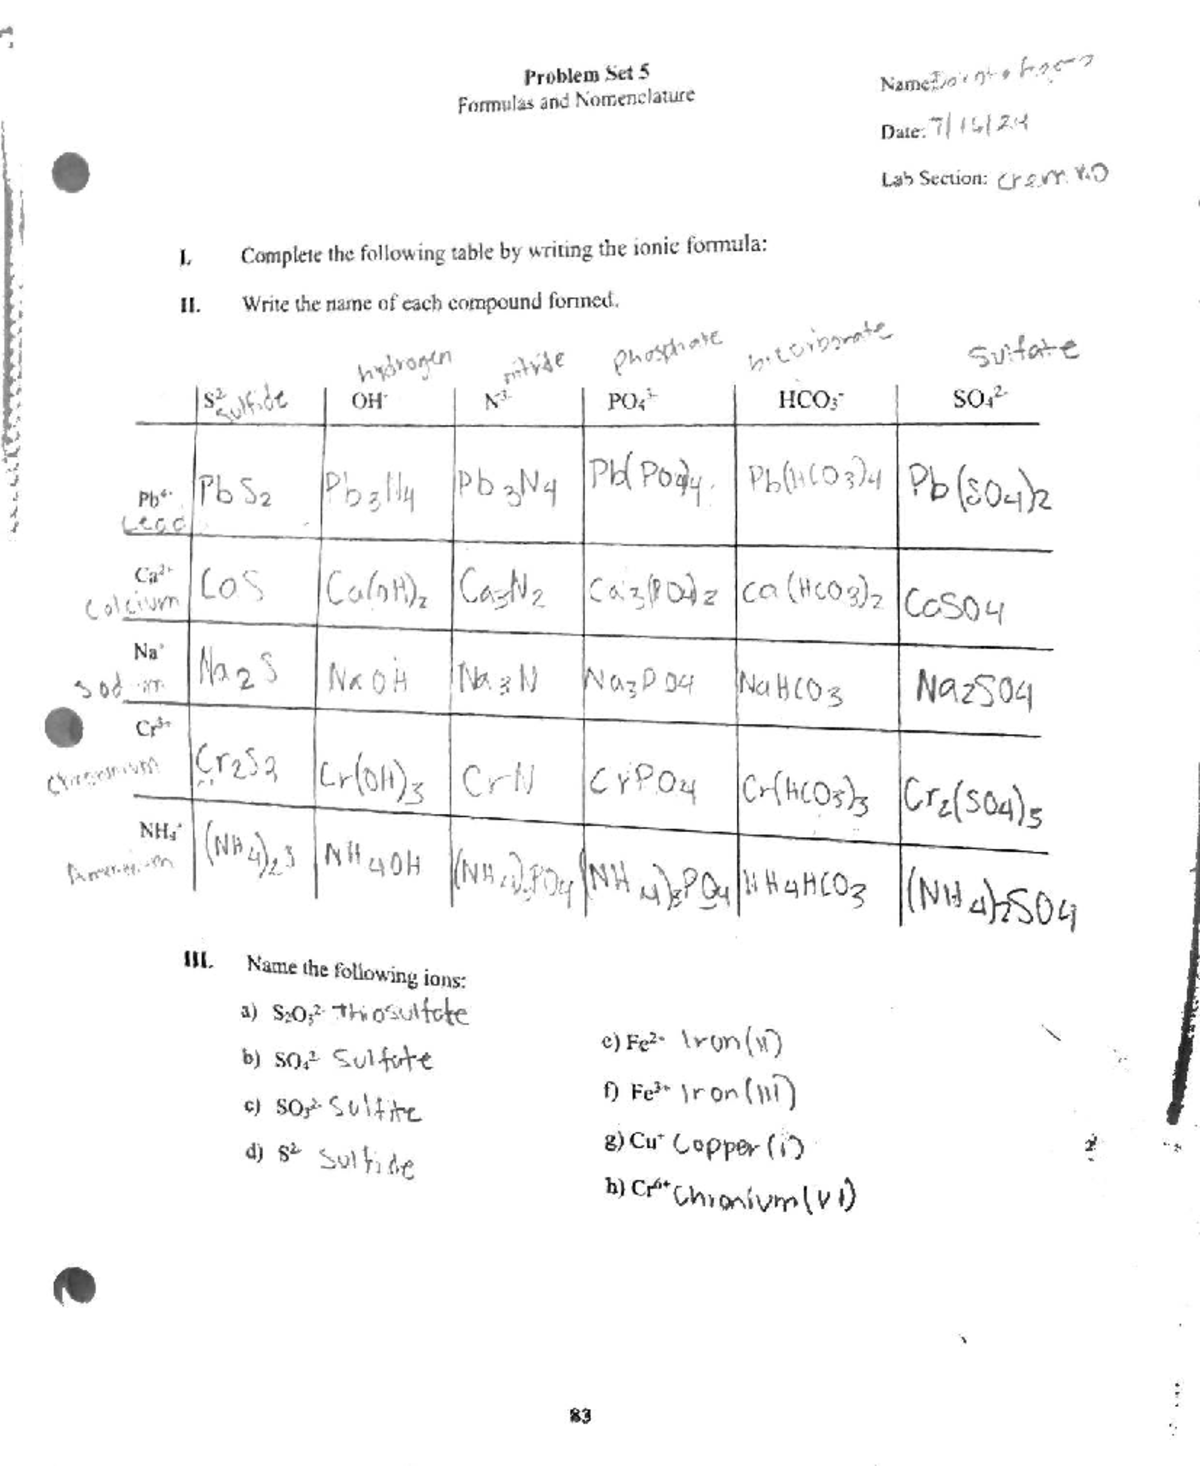 Problem Set 5
Formulas and Nomenclature
Name:
Date: 7/16/24
Lab Section:
I. Complete the following table by writing the ionic formula:
II. Write the name of each compound formed.
hydrogen nitride phosphate bicarbonate Sulfate
S²⁻ sulfide OH⁻ N³⁻ PO₄³⁻ HCO₃⁻ SO₄²⁻
Pb⁴⁺ Lead PbS₂ Pb₃N₄ Pb₃N₄ Pb(PO₄)₄ Pb(HCO₃)₄ Pb(SO₄)₂
Ca²⁺ Calcium CaS Ca(OH)₂ Ca₃N₂ Ca₃(PO₄)₂ Ca(HCO₃)₂ CaSO₄
Na⁺ Sodium Na₂S NaOH Na₃N Na₃PO₄ NaHCO₃ Na₂SO₄
Cr³⁺ Chromium Cr₂S₃ Cr(OH)₃ CrN CrPO₄ Cr(HCO₃)₃ Cr₂(SO₄)₃
NH₄⁺ Ammonium (NH₄)₂S NH₄OH (NH₄)₃PO₄ (NH₄)₃PO₄ NH₄HCO₃ (NH₄)₂SO₄
III. Name the following ions:
a) S₂O₃²⁻ Thiosulfate
b) SO₄²⁻ Sulfate
c) SO₃²⁻ Sulfite
d) S²⁻ Sulfide
e) Fe²⁺ Iron (II)
f) Fe³⁺ Iron (III)
g) Cu⁺ Copper (I)
h) Cr⁶⁺ Chromium (VI)
83